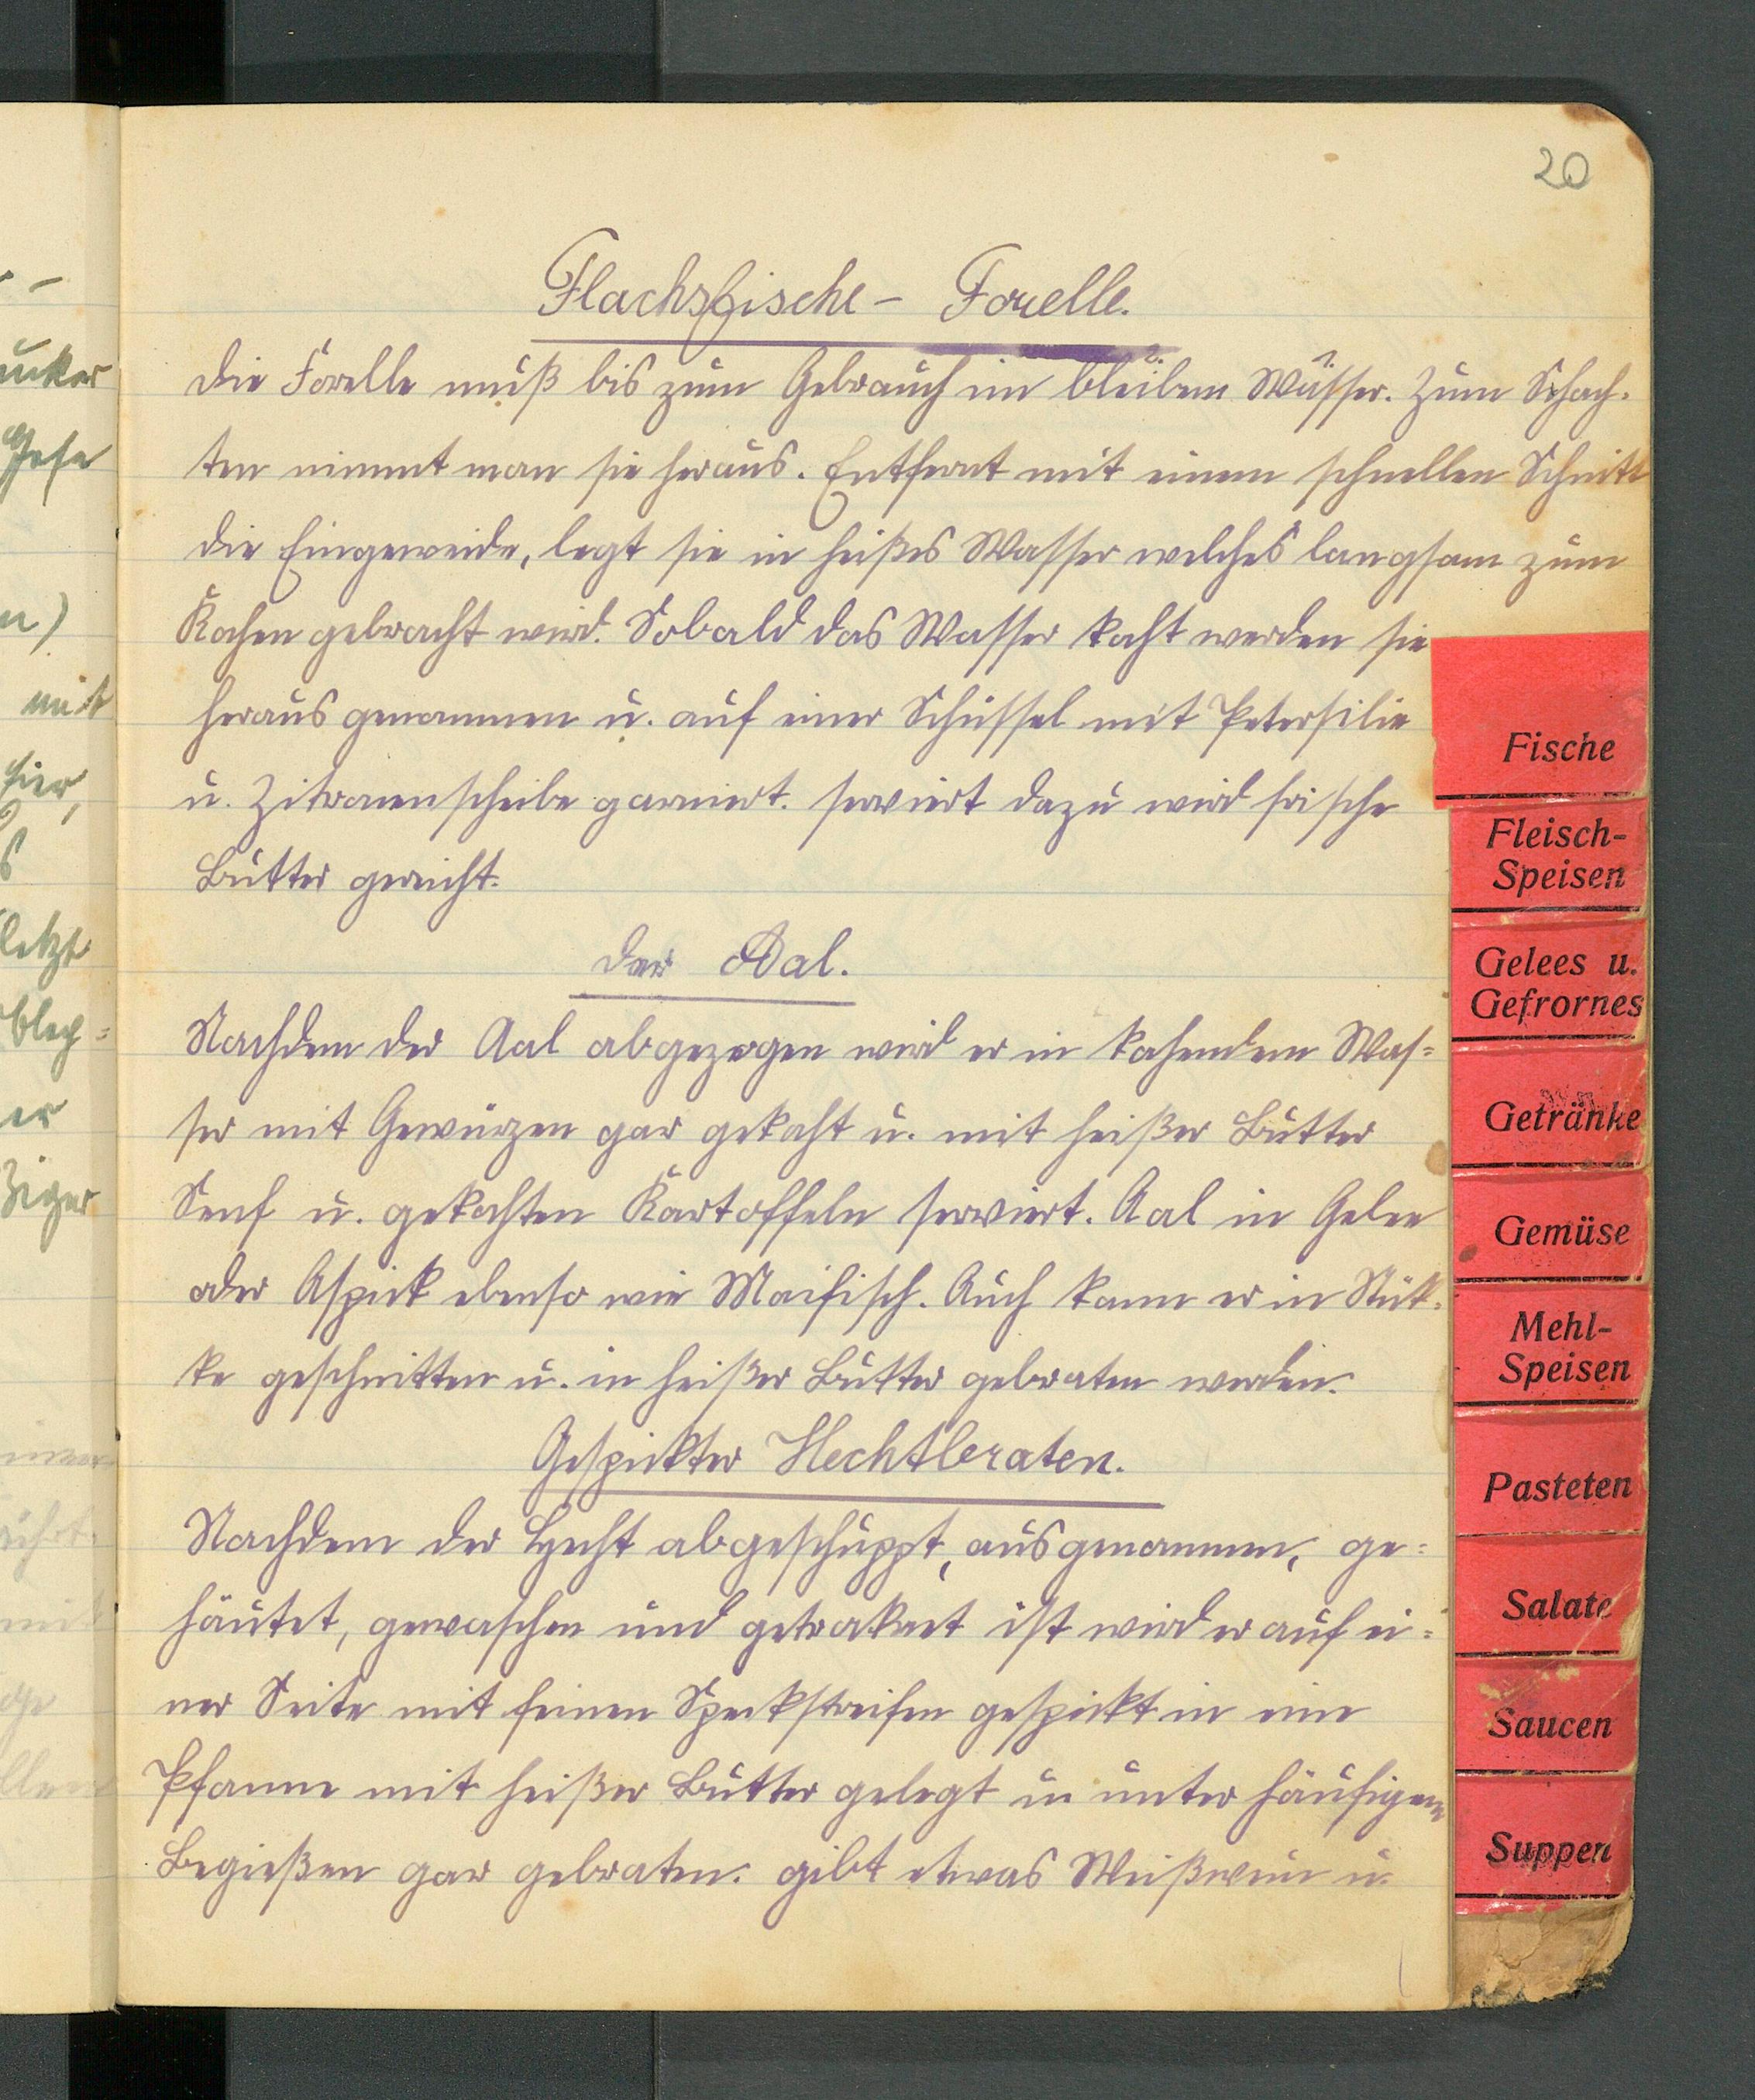 20
Flachsfische - Forelle.
Die Forelle muß bis zum Gebrauch im bleiben 2. Wasser. 1. Zum Schach-
ten nimmt man sie heraus. Entfernt mit einem schnellen Schnitt
die Eingeweide, legt sie in heißes Wasser welches langsam zum
Kochen gebracht wird. Sobald das Wasser kocht werden sie
heraus genommen u. auf einer Schüssel mit Petersilie
u. Zitronenscheibe garniert. serviert dazu wird frische
Butter gereicht.
Der Aal.
Nachdem der Aal abgezogen wird er in kochendem Was-
ser mit Gewürzen gar gekocht u. mit heißer Butter
Senf u. gekochten Kartoffeln serviert. Aal in Gelee
oder Aspick ebenso wie Maifisch. Auch kann er in Stük-
ke geschnitten u. in heißer Butter gebraten werden.
Gespickter Hechtbraten.
Nachdem der Hecht abgeschuppt, ausgenommen, ge-
häutet, gewaschen und getroknet ist wird er auf ei-
ner Seite mit feinen Speckstreifen gespickt in eine
Pfanne mit heißer Butter gelegt u. unter häufigem
Begießen gar gebraten. gibt etwas Weißwein u.
Fische
Fleisch-
Speisen
Gelees u.
Gefrornes
Getränke
Gemüse
Mehl-
Speisen
Pasteten
Salate
Saucen
Suppen